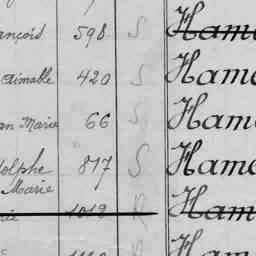 ançois 598 S Hame
Aimable 420 S Hame
an Marie 66 S Hame
dolphe Marie 817 S Hame
rie 1012 R Hame
Ham